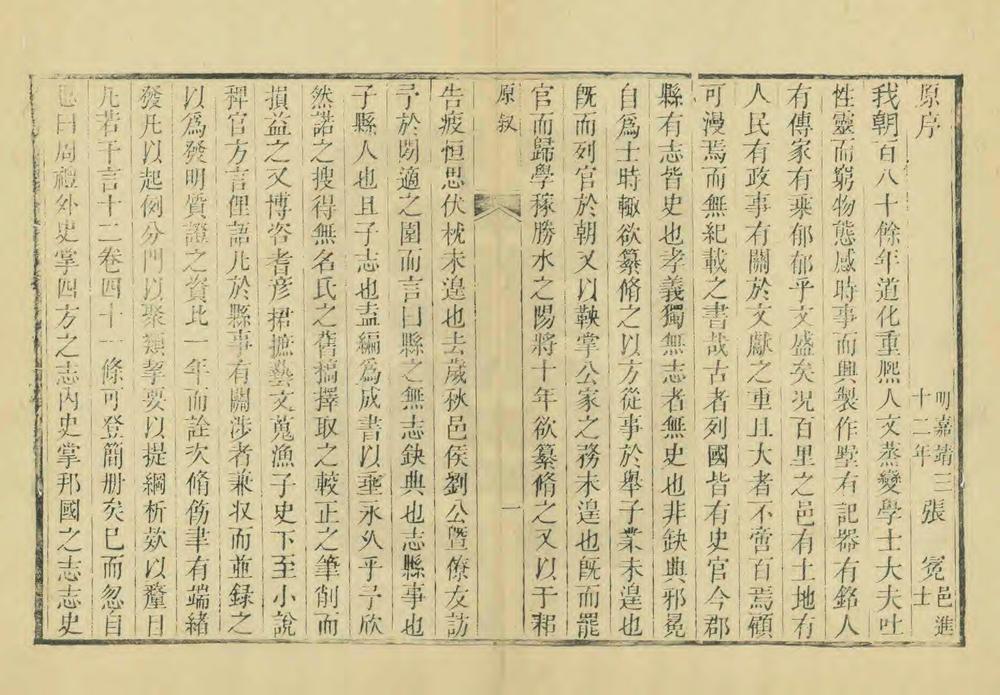 原序
明嘉靖三十二年 張冕 邑進士
我朝百八十餘年道化重熈人文蒸變學士大夫吐
性靈而窮物態感時事而興製作墅有記器有銘人
有傳家有乘郁郁乎文盛矣况百里之邑有土地有
人民有政事有關於文獻之重且大者不啻百焉顧
可漫焉而無紀載之書哉古者列國皆有史官今郡
縣有志皆史也孝義獨無志者無史也非缺典邪冕
自爲士時輙欲纂脩之以方從事於舉子業未遑也
旣而列官於朝又以鞅掌公家之務未遑也旣而罷
官而歸學稼勝水之陽將十年欲纂脩之又以于耜
原叙
一
告疲恒思伏枕未遑也去歲秋邑侯劉公曁僚友訪
予於閑適之園而言曰縣之無志缺典也志縣事也
子縣人也且子志也盍編爲成書以垂永久乎予欣
然諾之搜得無名氏之舊稿擇取之較正之筆削而
損益之又博咨耆彦捃摭藝文蒐漁子史下至小說
稗官方言俚語凡於縣事有關涉者兼収而並録之
以爲發明質證之資比一年而詮次脩飭聿有端緒
發凡以起例分門以聚類挈要以提綱析欵以釐目
凡若干言十二卷四十一條可登簡册矣已而忽自
思曰周禮外史掌四方之志内史掌邦國之志志史